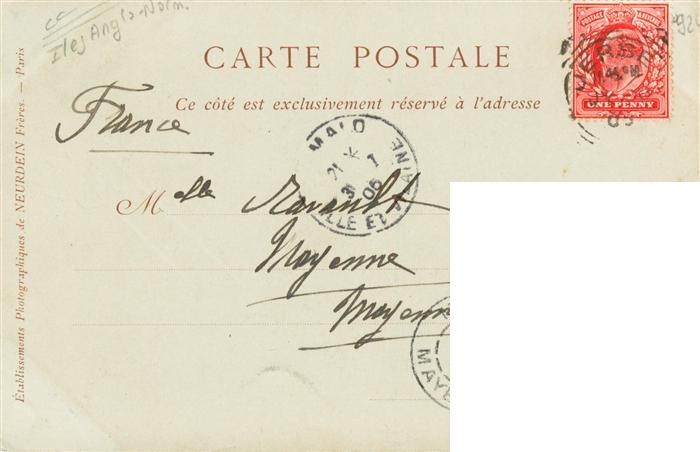 cc
Iles Anglo-Norm.
CARTE POSTALE
Ce côté est exclusivement réservé à l'adresse
POSTAGE REVENUE
ONE PENNY
JERSEY
France
MALO
ILLE ET VILAINE
Melle Ravault
Mayenne
Mayenn
MAYE
Établissements Photographiques de NEURDEIN Frères. — Paris